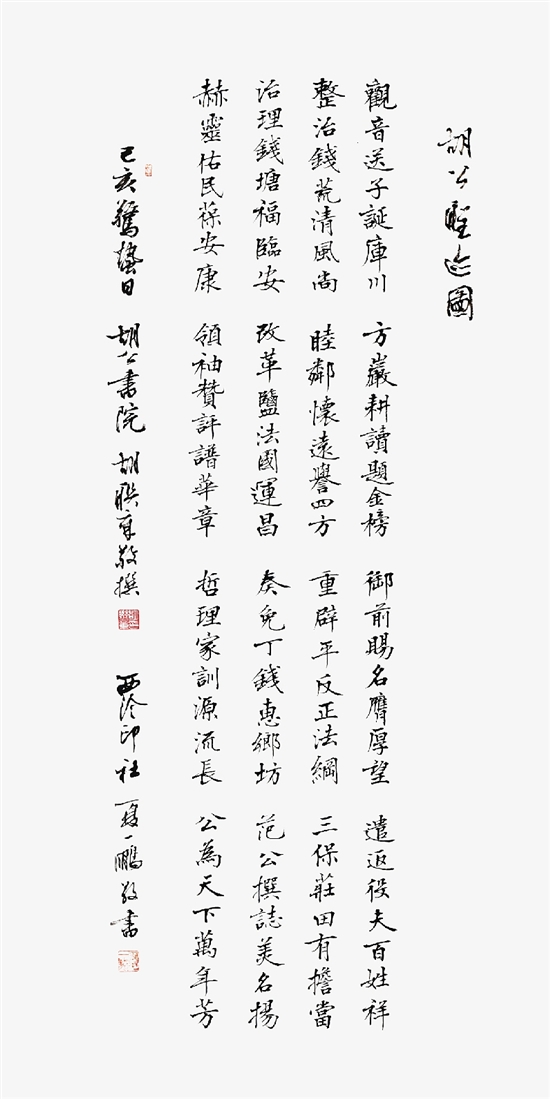 胡公聖迹圖
觀音送子誕庫川 方巖耕讀題金榜 御前賜名膺厚望 遣返役夫百姓祥
整治錢荒清風尚 睦鄰懷遠譽四方 重辟平反正法綱 三保莊田有擔當
治理錢塘福臨安 改革鹽法國運昌 奏免丁錢惠鄉坊 范公撰誌美名揚
赫靈佑民葆安康 領袖贊評譜華章 哲理家訓源流長 公為天下萬年芳
己亥驚蟄日 胡公書院 胡聯章敬撰 西泠印社 夏一鵬敬書